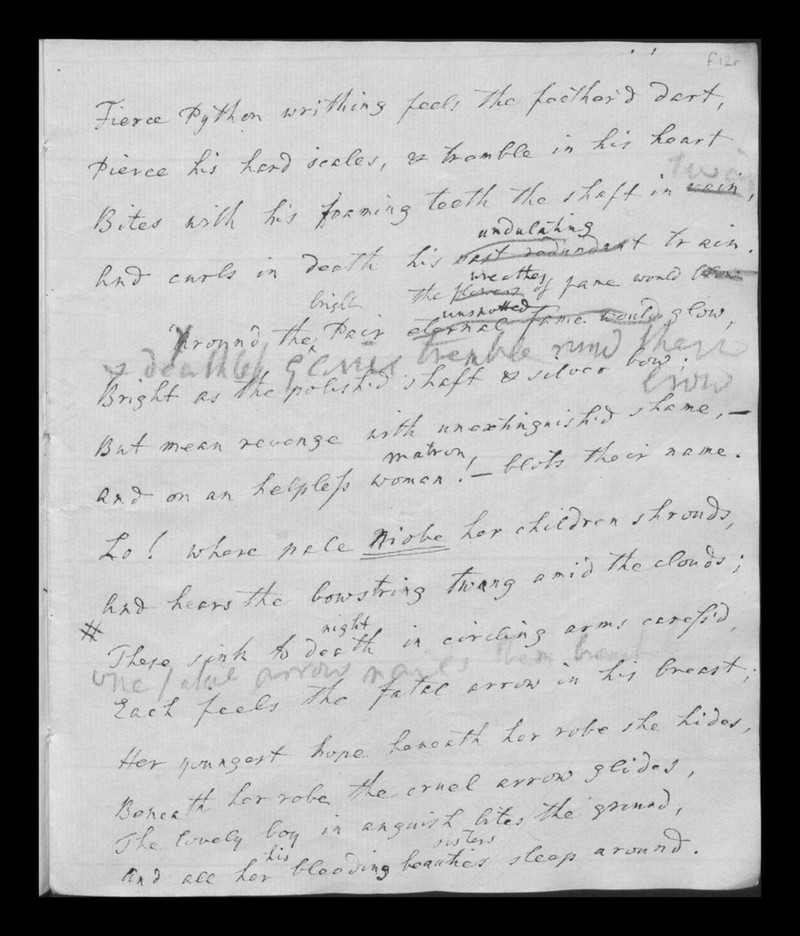 f.12r
Fierce Python writhing feels the feather'd dart,
Pierce his hard scales, & tremble in his heart
twain
Bites with his foaming teeth the shaft in vain,
undulating
And curls in death his vast redundant train.
wreathes
the flowers of fame would blow
bright
unspotted
Around the Pair eternal fame would glow,
& deathless glories tremble round their
brow
Bright as the polish'd shaft & silver bow;
But mean revenge with unextinguish'd shame,—
matron
And on an helpless woman!— blots their name.
Lo! where pale Niobe her children shrouds,
And hears the bowstring twang amid the clouds;
night
# These sink to death in circling arms caress'd,
one fatal arrow nails them
Each feels the fatal arrow in his breast;
Her youngest hope beneath her robe she hides,
Beneath her robe the cruel arrow glides,
The lovely boy in anguish bites the ground,
his sisters
And all her bleeding beauties sleep around.